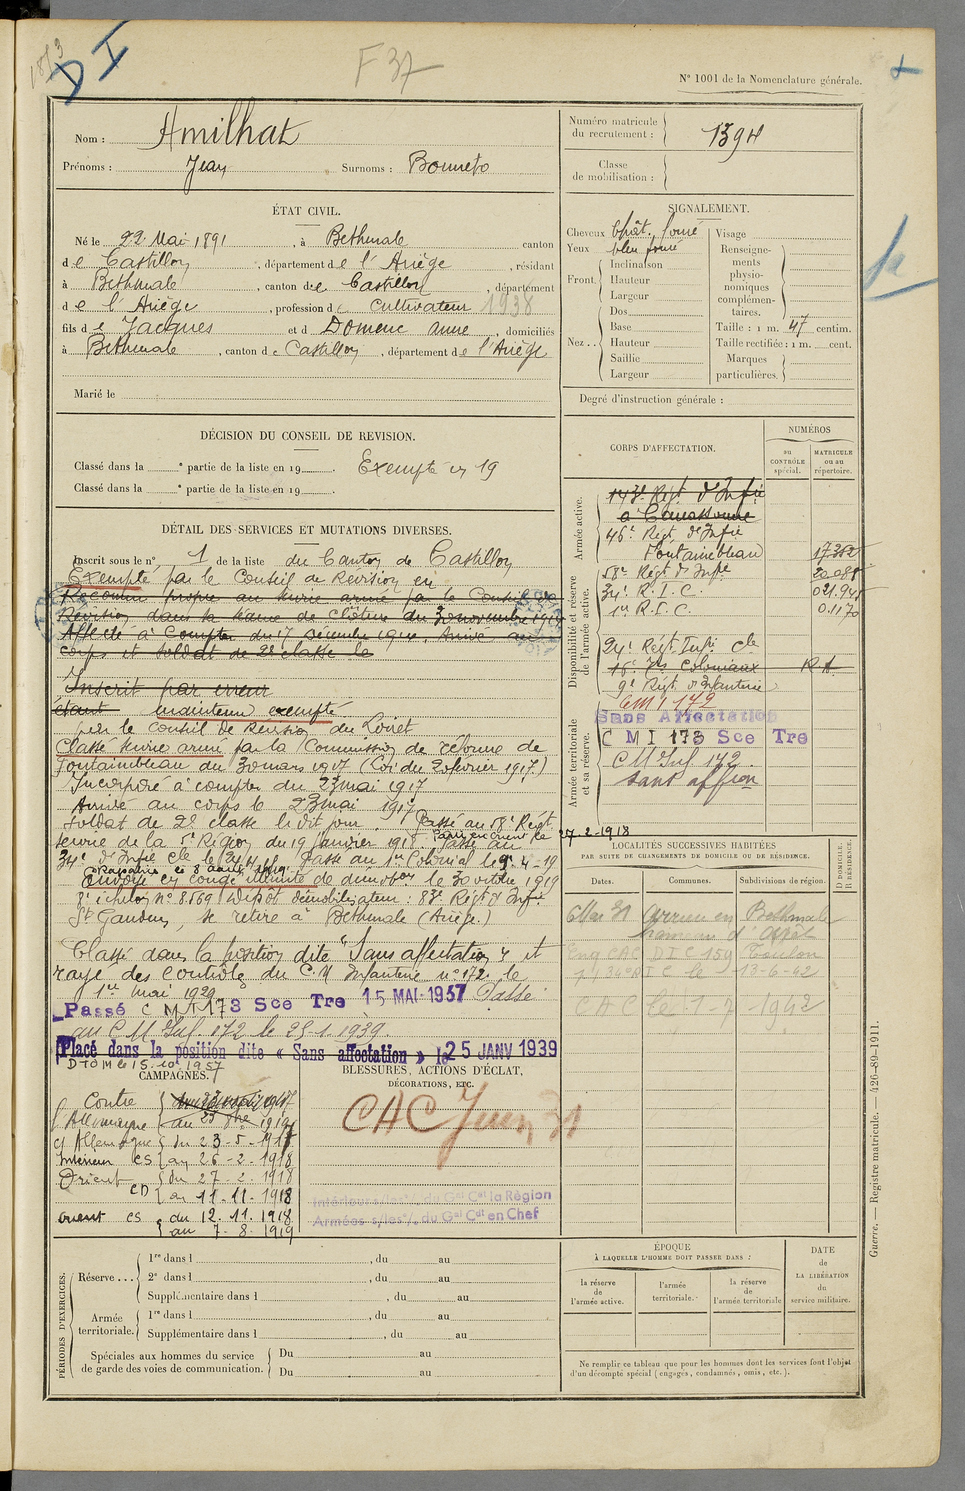 1873
D I
F 37
N° 1001 de la Nomenclature générale.
Nom : Amilhat
Prénoms : Jean Surnoms : Bonneto
Numéro matricule du recrutement : 1394
Classe de mobilisation :
ÉTAT CIVIL.
Né le 22 Mai 1891, à Bethmale canton
de Castillon, département de l'Ariège, résidant
à Bethmale, canton de Castillon, département
de l'Ariège, profession de cultivateur 1938
fils de Jacques et d Domenc Anne, domiciliés
à Bethmale, canton de Castillon, département de l'Ariège
Marié le
SIGNALEMENT.
Cheveux chât. foncé
Yeux bleu foncé
Front. Inclinaison
Hauteur
Largeur
Nez .. Dos
Base
Hauteur
Saillie
Largeur
Visage
Renseignements physionomiques complémentaires.
Taille : 1 m. 47 centim.
Taille rectifiée : 1 m. cent.
Marques particulières.
Degré d'instruction générale :
DÉCISION DU CONSEIL DE REVISION.
Classé dans la ° partie de la liste en 19 . Exempté en 19
Classé dans la ° partie de la liste en 19 .
DÉTAIL DES SERVICES ET MUTATIONS DIVERSES.
Inscrit sous le n° 1 de la liste du Canton de Castillon
Exempté par le Conseil de Revision en
Reconnu propre au service armé par le Conseil de
Revision dans sa séance de clôture du 30 novembre 1914
Affecté à compter du 17 Décembre 1914, Arrivé au
corps et soldat de 2e classe le
Inscrit par erreur
étant maintenu exempté
par le Conseil de Revision du Loiret
Classé service armé par la Commission de réforme de
Fontainebleau du 30 mars 1917 (Loi du 20 février 1917)
Incorporé à compter du 23 mai 1917
Arrivé au corps le 23 mai 1917
Soldat de 2e classe le dit jour. Passé au 58e Régt
de la 5e Région du 19 Janvier 1918 Passé au
Parti en Orient le 27-2-1918
34e d'Infie Cle le Passe au 1er Colonial le 9-4-19
Rapatrié le 8 août 1919
Envoyé en congé illimité de démobon le 30 octobre 1919
8e échelon n° 8.569 Dépôt démobilisateur : 83e Régt d'Infie
St Gaudens, se retire à Bethmale (Ariège.)
Classé dans la position dite "Sans affectation" et
rayé des contrôles du C.M Infanterie n° 172 le
1er mai 1929
Passé C M I 173 Sce Tre 15 MAI 1937 Passé
au C M Inf. 172 le 25-1-1939
Placé dans la position dite « Sans affectation » le 25 JANV 1939
CORPS D'AFFECTATION.
NUMÉROS
DU CONTRÔLE spécial.
MATRICULE ou au répertoire.
Armée active.
143e Régt d'Infie
à Carcassonne
46e Régt d'Infie
Fontainebleau 17352
58e Régt d'Infie
34e R. I. C.
1er R. I. C. 01170
Disponibilité et réserve de l'armée active.
24e Régt Infie Cle
16e Coloniaux R A
9e Régt d'Infanterie
CMI 172
Armée territoriale et sa réserve.
Sans Affectation
C M I 173 Sce Tre
C M Inf 172
sans affion
LOCALITÉS SUCCESSIVES HABITÉES
PAR SUITE DE CHANGEMENTS DE DOMICILE OU DE RÉSIDENCE.
Dates. Communes. Subdivisions de région. D DOMICILE. R RÉSIDENCE.
6 Mai 31 Arrien en Bethmale
hameau d'Ayet
CAC DIC 159 Toulon
13-6-42
CAC le 1-7-1942
CAMPAGNES.
Contre
l'Allemagne au 1919
C/ Allemagne du 23-5-1917
Intérieur CS au 26-2-1918
Orient CD du 27-2-1918
au 11-11-1918
Orient CS du 12.11.1918
au 7-8-1919
BLESSURES, ACTIONS D'ÉCLAT,
DÉCORATIONS, ETC.
CAC Juin 31
Intérieur s/les o/ du Gal Cdt la Région
Armées s/les o/ du Gal Cdt en Chef
PÉRIODES D'EXERCICES.
Réserve ... 1re dans l , du au
2e dans l , du au
Supplémentaire dans l , du au
Armée territoriale. 1re dans l , du au
Supplémentaire dans l , du au
Spéciales aux hommes du service de garde des voies de communication. Du au
Du au
ÉPOQUE
À LAQUELLE L'HOMME DOIT PASSER DANS :
la réserve de l'armée active.
l'armée territoriale.
la réserve de l'armée territoriale
DATE de LA LIBÉRATION du service militaire.
Ne remplir ce tableau que pour les hommes dont les services font l'objet
d'un décompte spécial (engagés, condamnés, omis, etc.).
Guerre. — Registre matricule. — 426-89-1911.